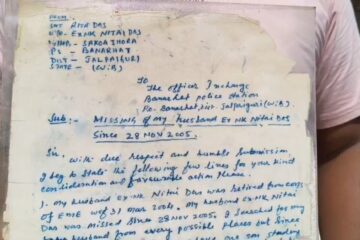 FROM,
SMT RITA DAS
W/o- EX NK NITAI DAS
VILL- SAKOAJHORA
PS - BANARHAT
DIST - JALPAIGURI
STATE - (W.B)
To
The officer Incharge
Banarhat police station
Po- Banarhat, dist- Jalpaiguri (W.B).
Sub:- MISSING of my husband EX NK NITAI DAS
Since 28 NOV 2005.
Sir,
with due respect and humble Submission
I beg to state the following few lines for your kind
consideration and favourable action Please.
1. My husband ex-NK Nitai Das was retired from corps
of EME wef 31 Mar 2004. My husband EX NK NITAI
DAS was missed Since 28 NOV 2005. I Searched for my
husband from every possible places but Since